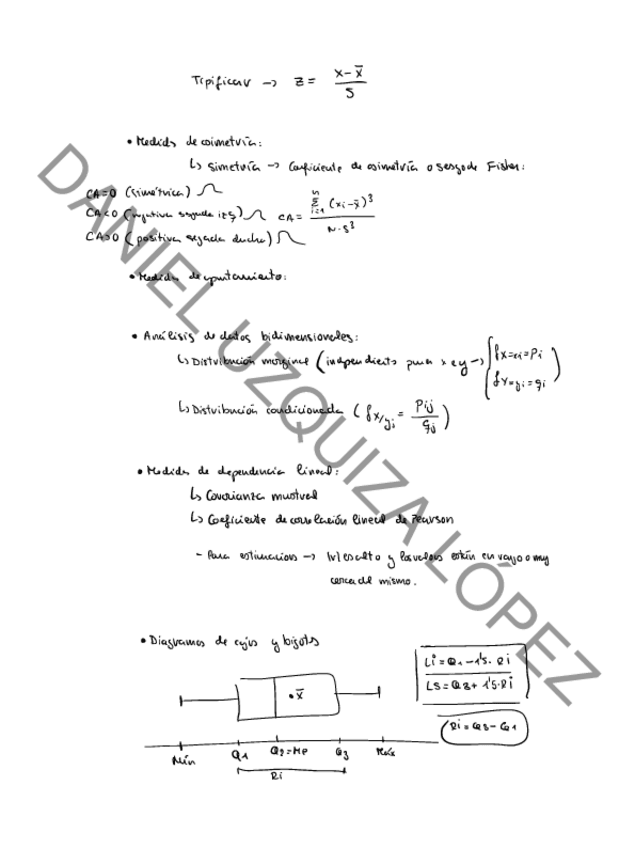 Tipificar -> Z = x - x̄ / S
• Medida de asimetría:
↳ simetría -> Coeficiente de asimetría o sesgo de Fisher:
CA=0 (simétrica)
CA<0 (negativa sesgada izq)
CA>0 (positiva sesgada dcha)
CA = Σ i=1 n (xi - x̄)³ / N·S³
• Medida de apuntamiento:
• Análisis de datos bidimensionales:
↳ Distribución marginal (independiente para x e y -> { fx=xi=Pi
fy=yi=qi )
↳ Distribución condicionada (fx/yi = Pij / qj)
• Medidas de dependencia lineal:
↳ Covarianza muestral
↳ Coeficiente de correlación lineal de Pearson
- Para estimaciones -> |r| es alto y los valores están en rango o muy
cerca del mismo.
• Diagramas de cajas y bigotes
Li = Q1 - 1'5·Ri
LS = Q3 + 1'5·Ri
Ri = Q3 - Q1
x̄
Mín Q1 Q2=Me Q3 Máx
Ri
DANIEL UZQUIZA LÓPEZ